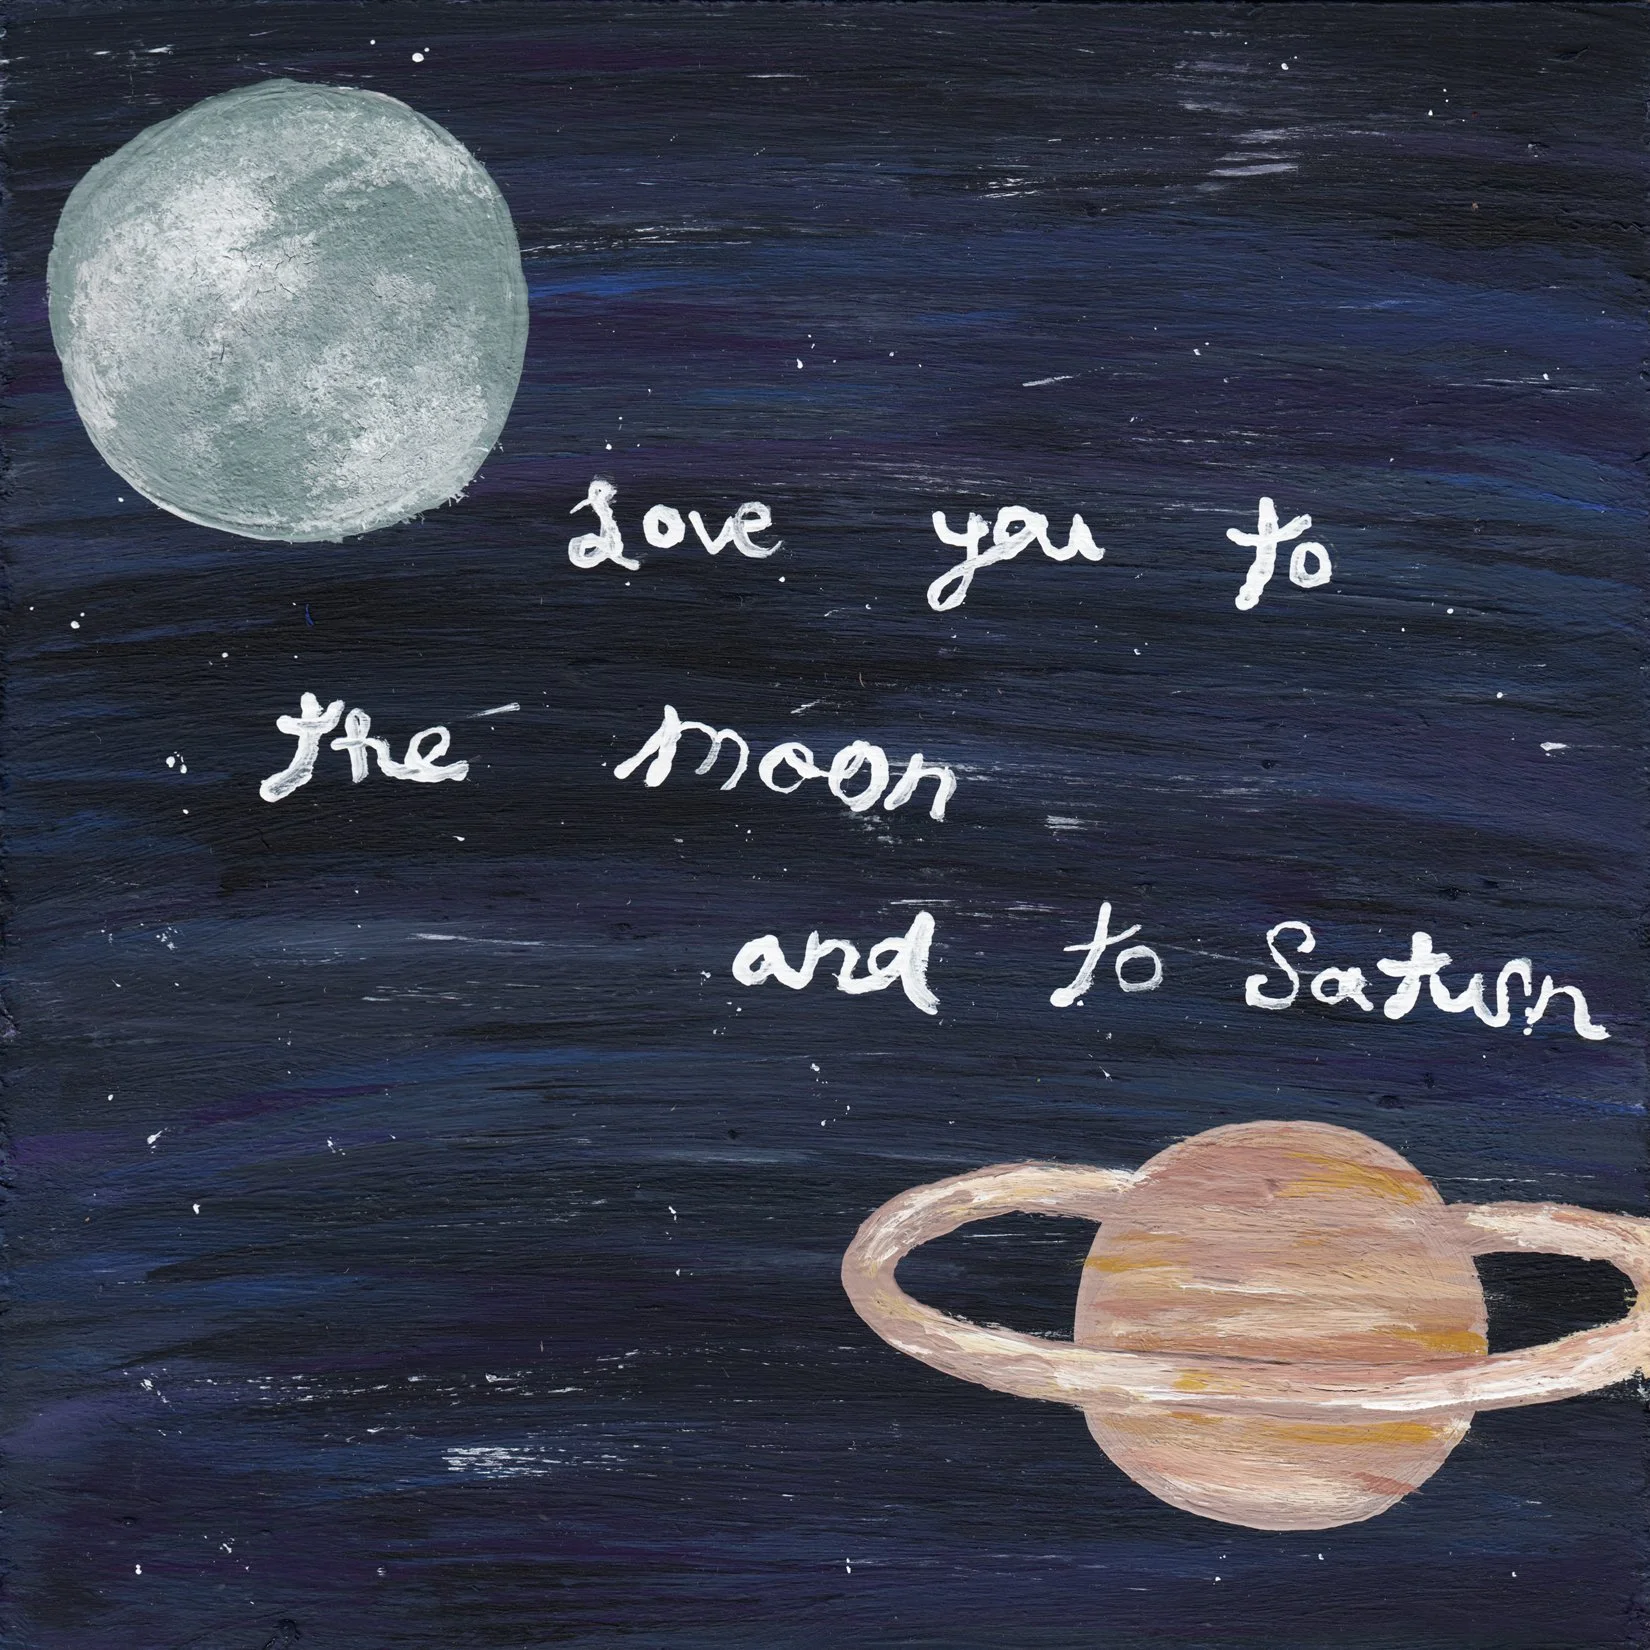 Love you to
the moon
and to Saturn